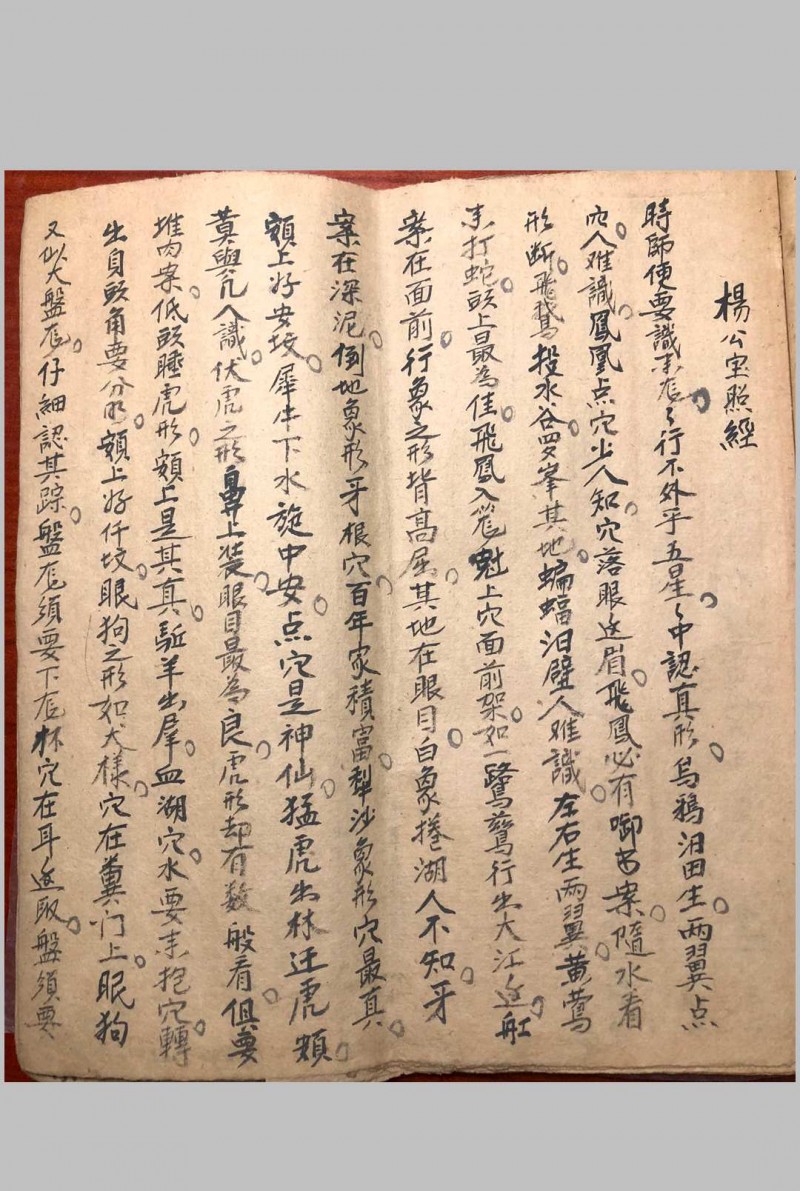 楊公宝照經
時師使要識來龙〻行不外乎五星〻中認真形烏鴉泪田生两翼点
穴人难識鳳凰点穴少人知穴落眼边眉飛鳳必有啣书案隨水看
形断飛鵞投水谷罗峯其地蝙蝠泪壁人难識左右生两翼黄鶯
来打蛇头上最為佳飛鳳入篭魁上穴面前架如一鷺鶿行出大江边缸
案在面前行象之形皆高屈其地在眼目白象捲湖人不知牙
案在深泥倒地象形牙根穴百年家積富犁沙象形穴最真
額上好安坟犀牛下水施中安点穴是神仙猛虎出林迁虎頬
黄與究人識伏虎之形鼻上装眼目最為良虎形却有数般看俱要
堆肉案低头睡虎形額上是其真駈羊出羣血湖穴水要来抱穴轉
出身头角要分明額上好仟坟眼狗之形如犬樣穴在糞门上眠狗
又似大盤龙仔細認其踪盤龙須要下龙杯穴在耳边取盤須要